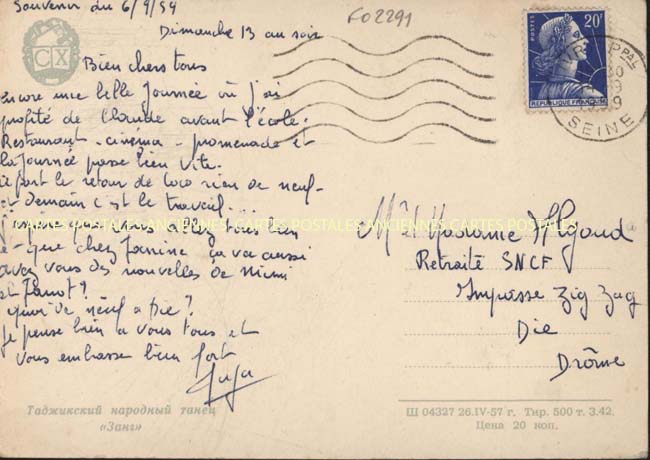 Souvenir du 6/9/59
Dimanche 13 au soir
FO2291
CX
Bien chers tous
encore une belle journée où j'ai
profité de Claude avant l'école.
Restaurant - cinéma - promenade et
la journée passe bien vite.
à part le retour de Coco rien de neuf -
et demain c'est le travail.
j'espère que vous allez très bien
- que chez Janine ça va aussi
avez vous des nouvelles de Mimi
et
quoi de neuf à Die?
je pense bien à vous tous et
vous embrasse bien fort
CARTES POSTALES ANCIENNES CARTES POSTALES ANCIENNES CARTES POSTALES
POSTES
20F
REPUBLIQUE FRANÇAISE
PPAL
SEINE
Mr et Madame
Retraité SNCF
Impasse Zig Zag
Die
Drôme
Таджикский народный танец
«Занг»
Ш 04327 26.IV-57 г. Тир. 500 т. 3.42.
Цена 20 коп.